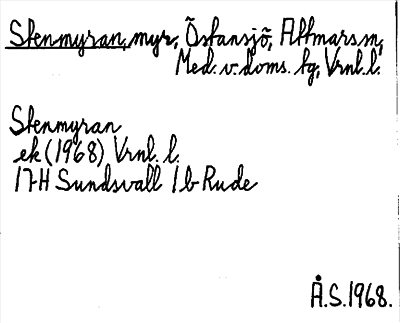 Stenmyran, myr, Östansjö, Attmars sn,
Med. v. doms. tg, Vrnl. l.
Stenmyran
ek (1968) Vrnl. l.
17H Sundsvall 1b Rude
Å.S. 1968.